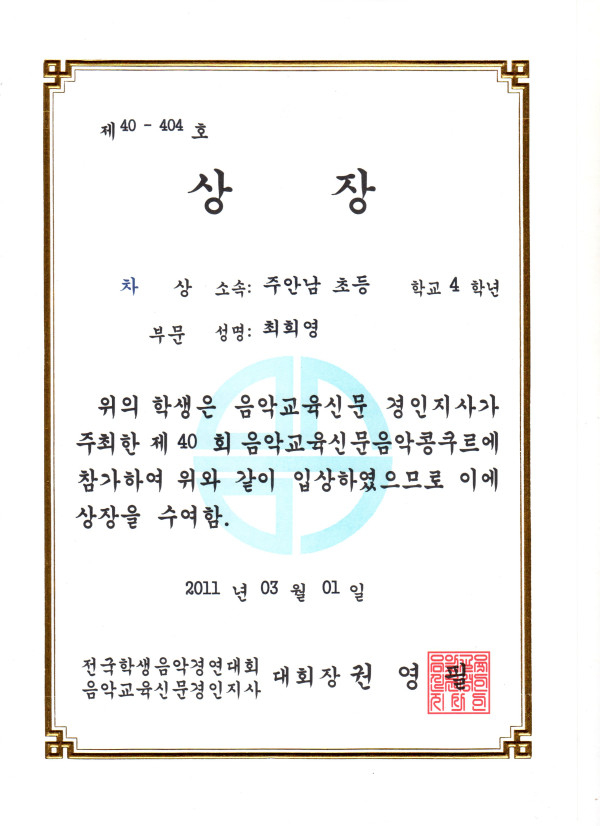 제 40 - 404 호
상 장
차 상 소속: 주안남 초등 학교 4 학년
부문 성명: 최희영
위의 학생은 음악교육신문 경인지사가
주최한 제 40 회 음악교육신문음악콩쿠르에
참가하여 위와 같이 입상하였으므로 이에
상장을 수여함.
2011 년 03 월 01 일
전국학생음악경연대회
음악교육신문경인지사 대회장 권 영 필